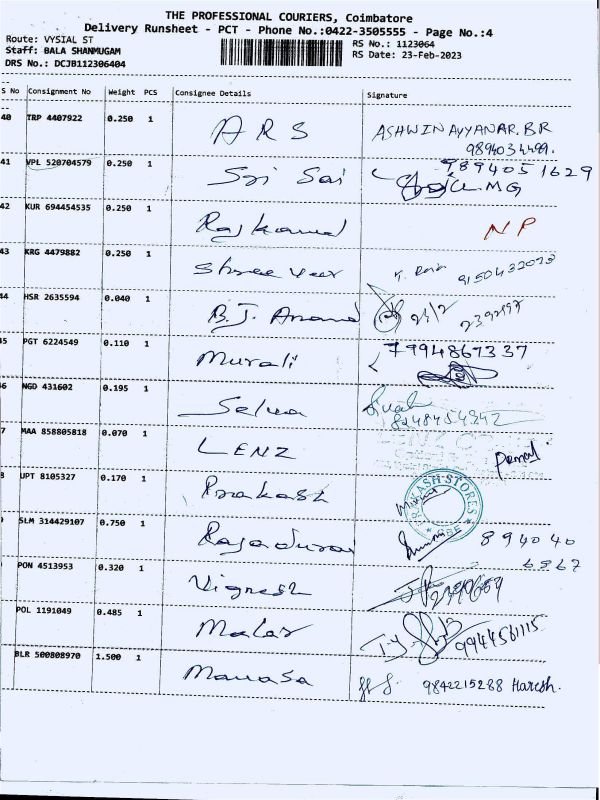 THE PROFESSIONAL COURIERS, Coimbatore
Delivery Runsheet - PCT - Phone No.:0422-3505555 - Page No.:4
Route: VYSIAL ST
RS No.: 1123064
Staff: BALA SHANMUGAM
RS Date: 23-Feb-2023
DRS No.: DCJB112306404
S No Consignment No Weight PCS Consignee Details Signature
40 TRP 4407922 0.250 1 A R S ASHWIN AYYANAR.BR
9894034499.
41 VPL 520704579 0.250 1 Sri Sai 9894051629
MG
42 KUR 694454535 0.250 1 Raj kamal NP
43 KRG 4479882 0.250 1 Shree Veer
44 HSR 2635594 0.040 1 B.J. Anand
45 PGT 6224549 0.110 1 Murali 7994867337
6 NGD 431602 0.195 1 Selva
8248454342
7 MAA 858805818 0.070 1 LENZ
8 UPT 8105327 0.170 1 Prakash
PRAKASH STORES
CBE
SLM 314429107 0.750 1 Rajadurai 894040
6867
PON 4513953 0.320 1 Vignesh
POL 1191049 0.485 1 Malar 9944561115
BLR 500808970 1.500 1 Manasa 9842215288 Haresh.